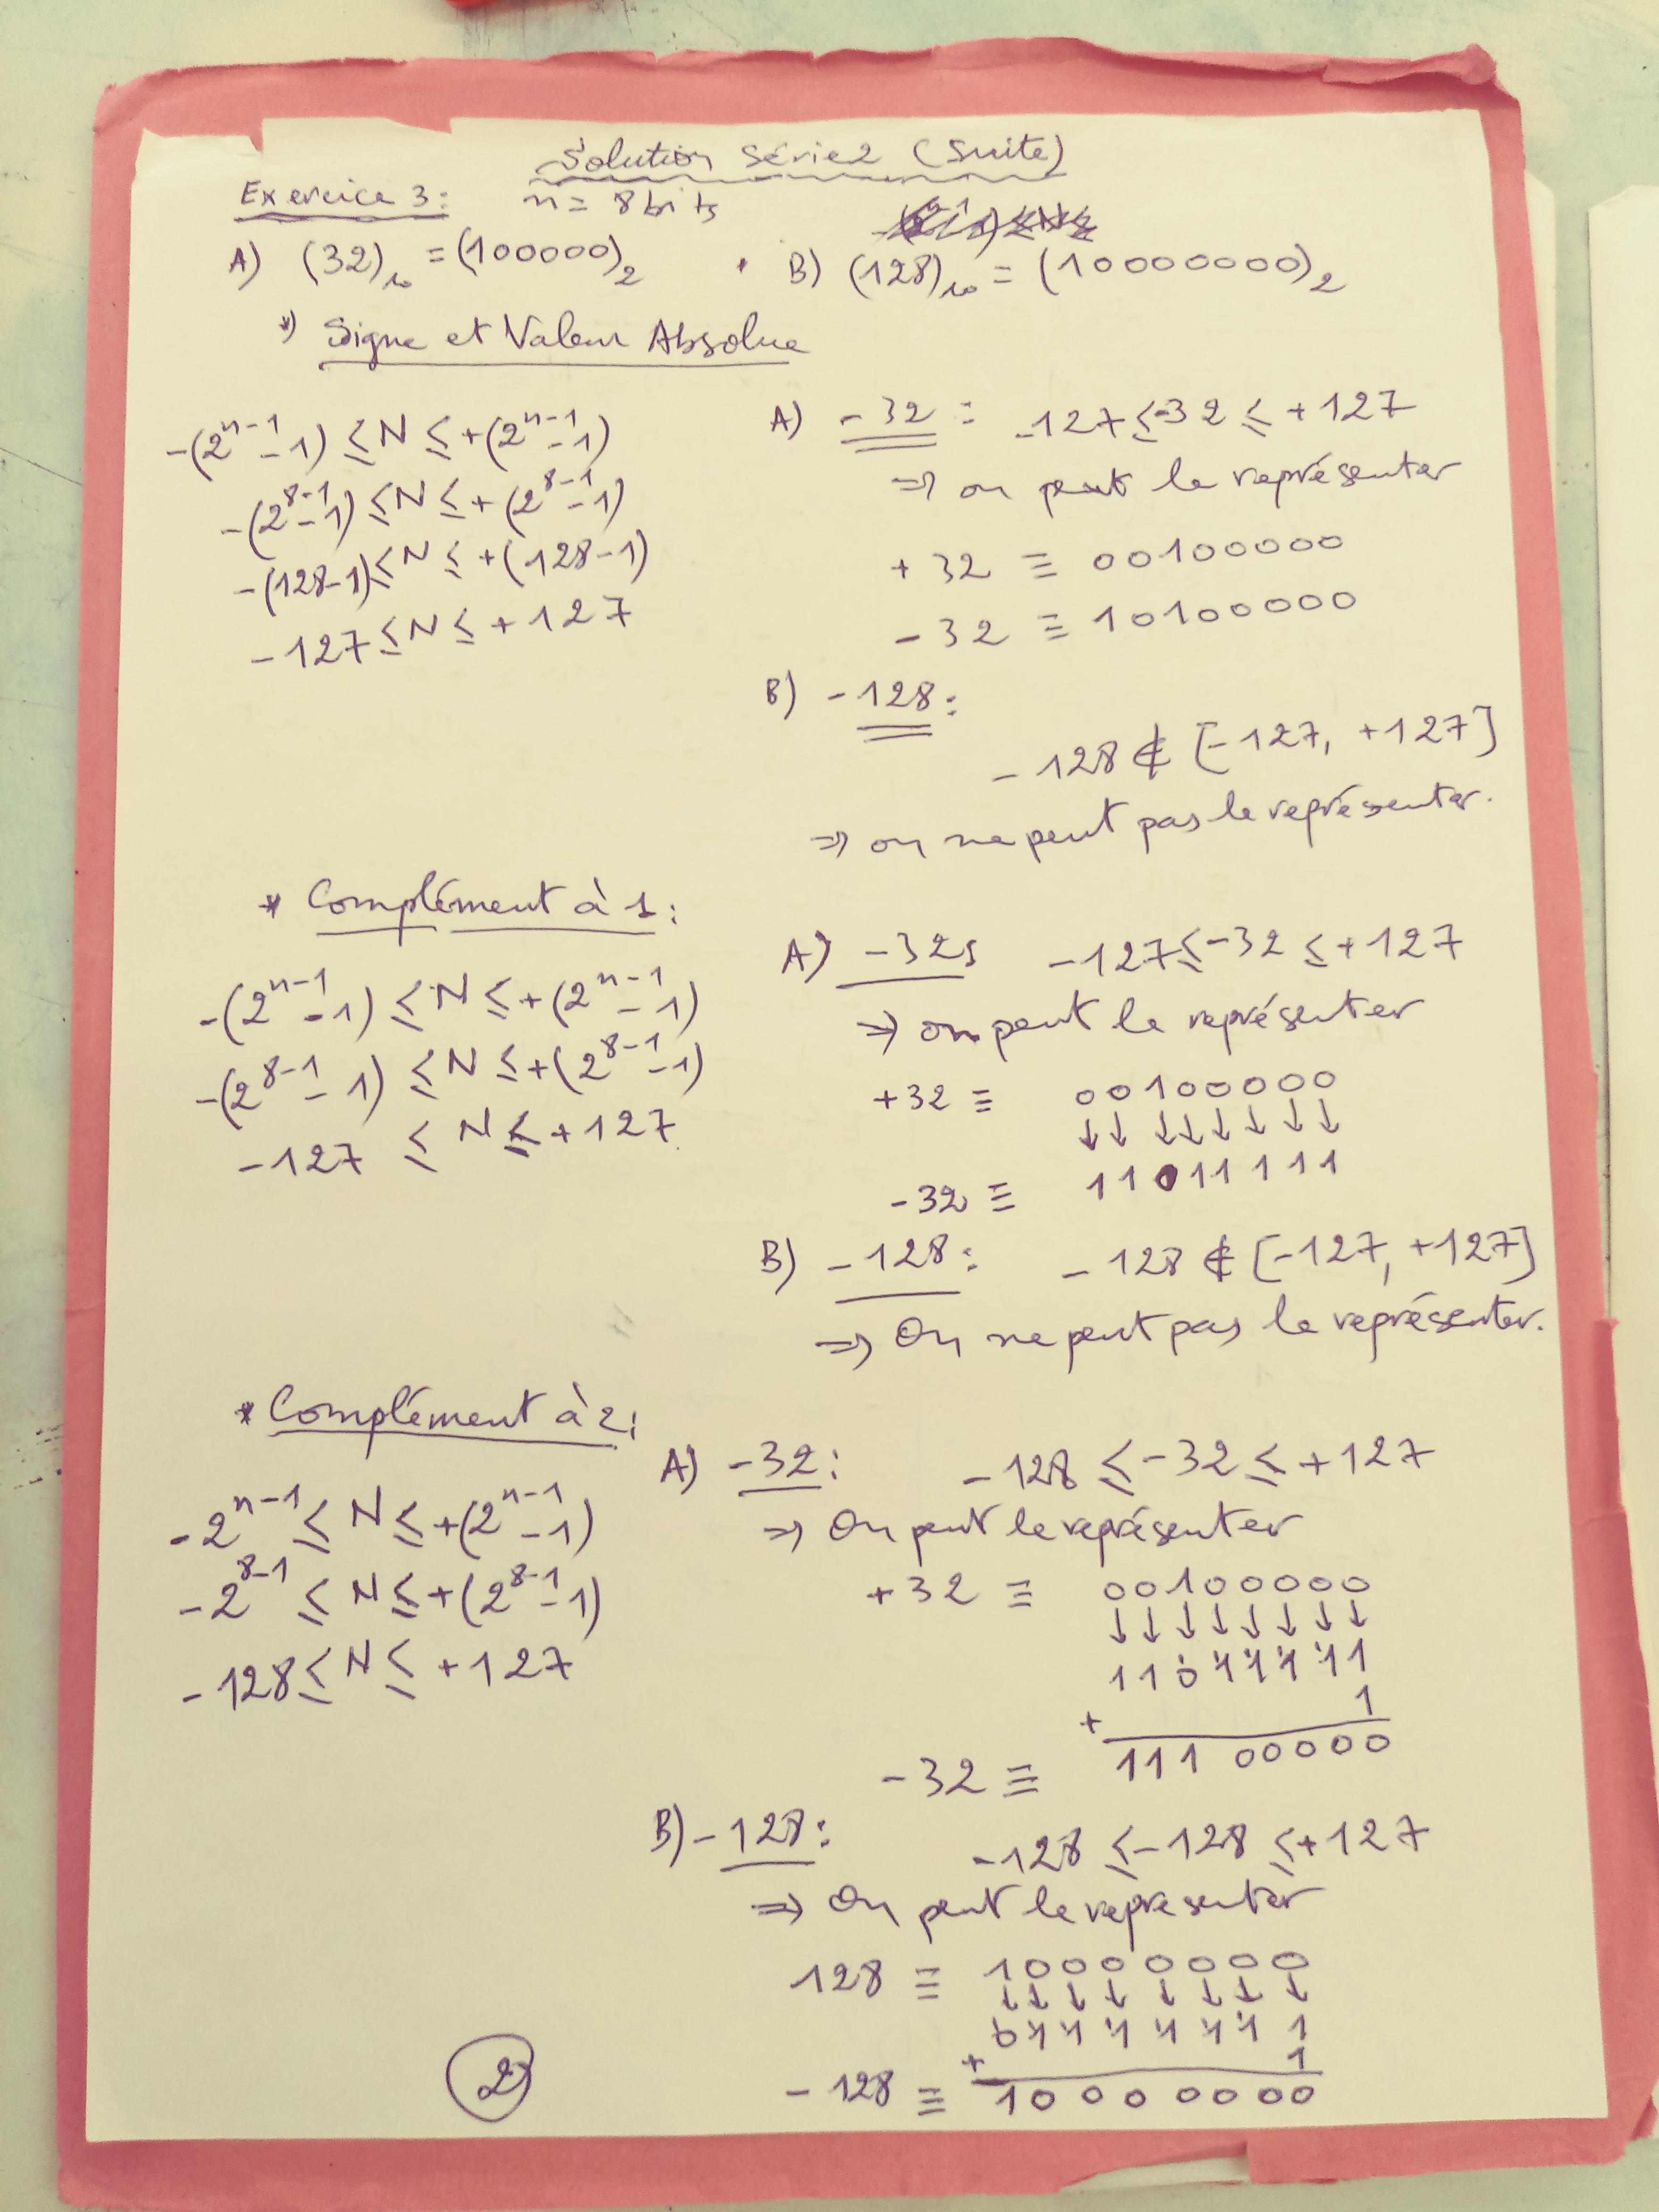 Solution Série2 (Suite)
Exercice 3: n = 8 bits
A) (32)₁₀ = (100000)₂ B) (128)₁₀ = (10000000)₂
*) Signe et Valeur Absolue
-(2ⁿ⁻¹ - 1) ≤ N ≤ +(2ⁿ⁻¹ - 1)
-(2⁸⁻¹ - 1) ≤ N ≤ +(2⁸⁻¹ - 1)
-(128-1) ≤ N ≤ +(128-1)
-127 ≤ N ≤ +127
A) -32 : -127 ≤ -32 ≤ +127
=> on peut le représenter
+32 ≡ 00100000
-32 ≡ 10100000
B) -128 :
-128 ∉ [-127, +127]
=> on ne peut pas le représenter.
* Complément à 1 :
-(2ⁿ⁻¹ - 1) ≤ N ≤ +(2ⁿ⁻¹ - 1)
-(2⁸⁻¹ - 1) ≤ N ≤ +(2⁸⁻¹ - 1)
-127 ≤ N ≤ +127
A) -32 : -127 ≤ -32 ≤ +127
=> on peut le représenter
+32 ≡ 00100000
↓↓↓↓↓↓↓↓
-32 ≡ 11011111
B) -128 : -128 ∉ [-127, +127]
=> On ne peut pas le représenter.
* Complément à 2 :
-2ⁿ⁻¹ ≤ N ≤ +(2ⁿ⁻¹ - 1)
-2⁸⁻¹ ≤ N ≤ +(2⁸⁻¹ - 1)
-128 ≤ N ≤ +127
A) -32 : -128 ≤ -32 ≤ +127
=> On peut le représenter
+32 ≡ 00100000
↓↓↓↓↓↓↓↓
11011111
+ 1
-32 ≡ 11100000
B) -128 : -128 ≤ -128 ≤ +127
=> On peut le representer
128 ≡ 10000000
↓↓↓↓↓↓↓↓
01111111
+ 1
-128 ≡ 10000000
2